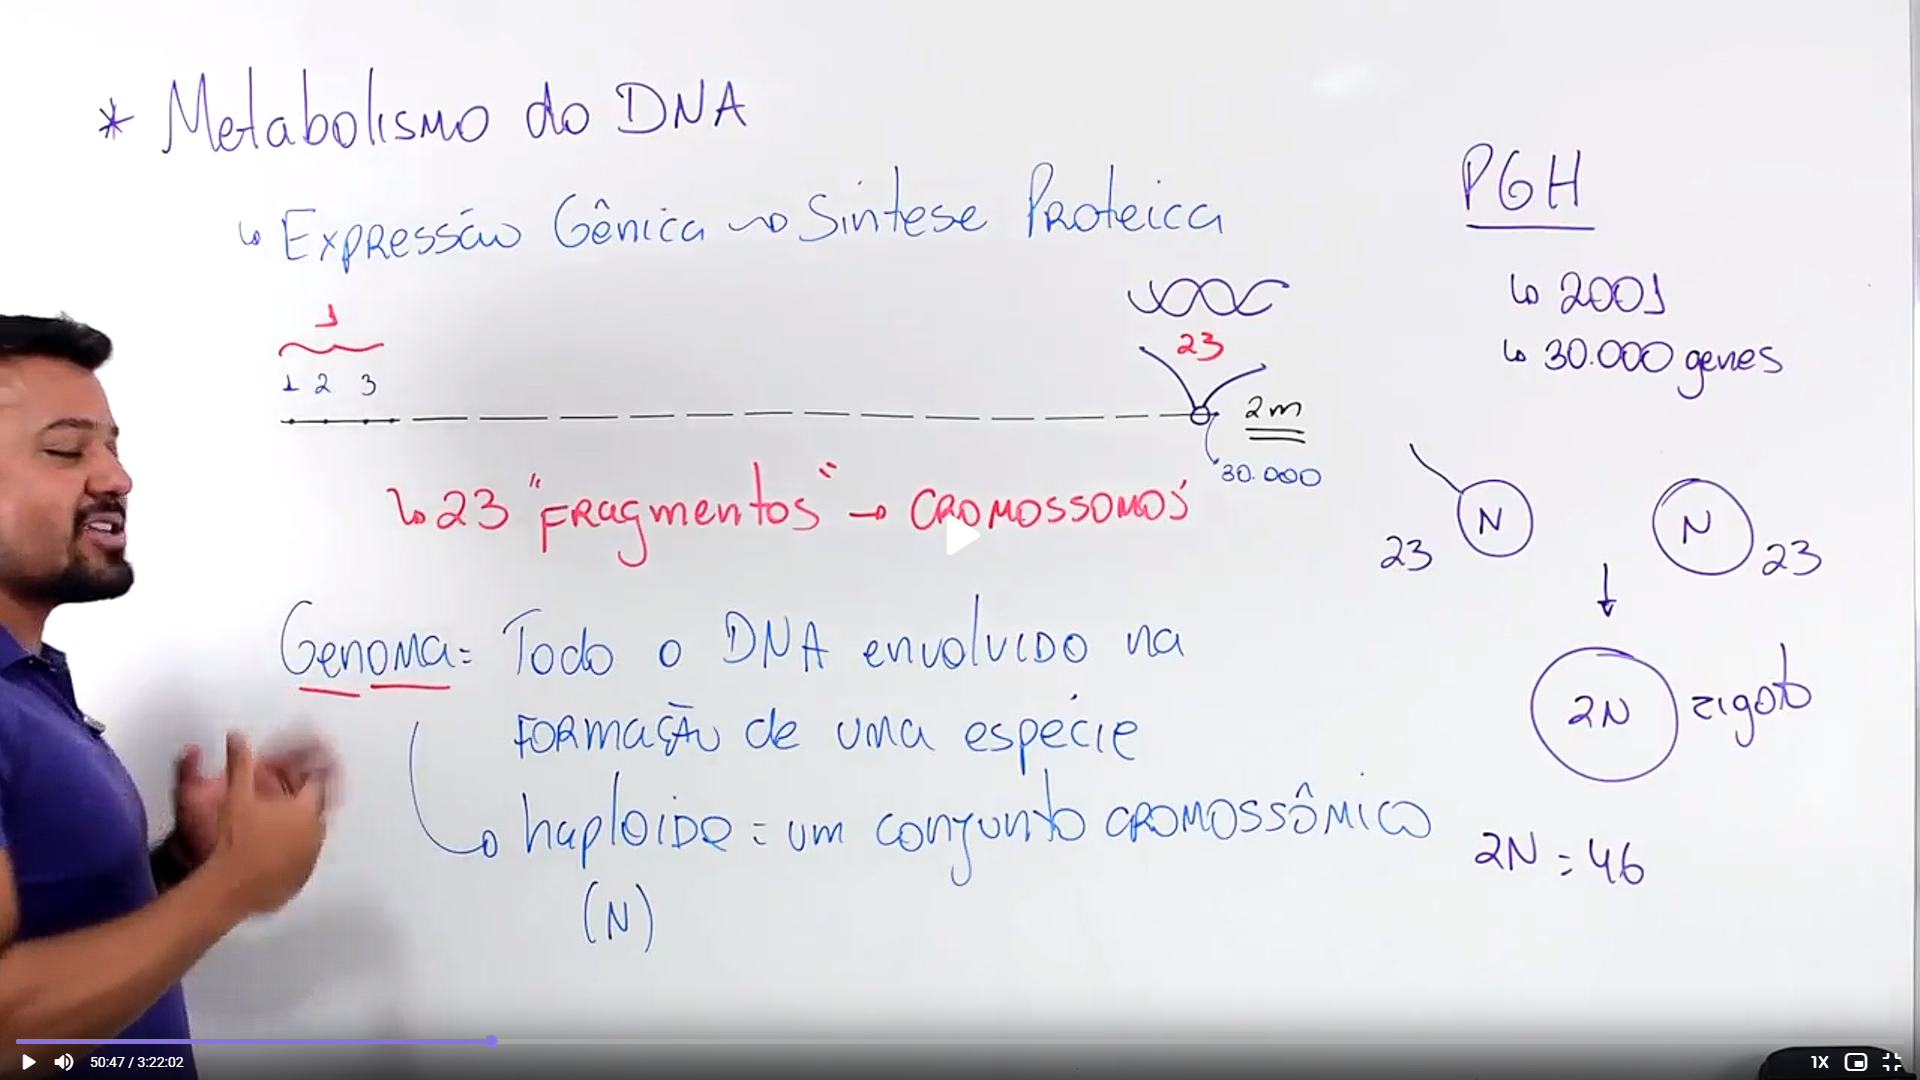 * Metabolismo do DNA
↳ Expressão Gênica ⇝ Síntese Proteica
1
1 2 3
23
2m
30.000
↳ 23 "Fragmentos" → CROMOSSOMOS
Genoma = Todo o DNA envolvido na
FORMAÇÃO de uma espécie
haploide = um conjunto CROMOSSÔMICO
(N)
PGH
↳ 2001
↳ 30.000 genes
N
23
N
23
2N zigoto
2N = 46
50:47 / 3:22:02
1X